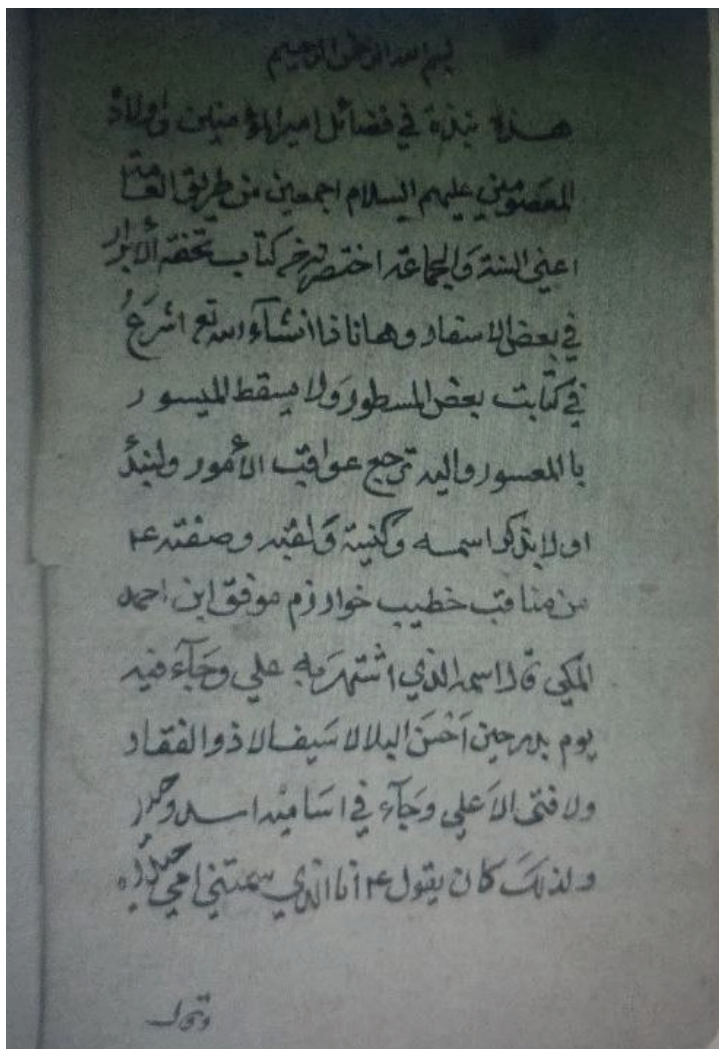 بسم الله الرحمن الرحيم
هذه نبذة في فضائل امير المؤمنين واولاده
المعصومين عليهم السلام اجمعين من طريق العامة
اعني السنة والجماعة اختصرته من كتاب تحفة الأبرار
في بعض الاسفار وها انا ذا انشآء الله تع اشرع
في كتابت بعض المسطور ولا يسقط الميسور
بالمعسور واليه ترجع عواقب الأمور ولنبدأ
اولا بذكر اسمه وكنيته ولقبه وصفته ع
من مناقب خطيب خوارزم موفق ابن احمد
المكي قال اسمه الذي اشتهر به علي وجآء فيه
يوم بدر حين احسن البلا لا سيف الا ذو الفقار
ولا فتى الا علي وجآء في اساميه اسد وحيدر
ولذلك كان يقول ع انا الذي سمتني امي حيدره